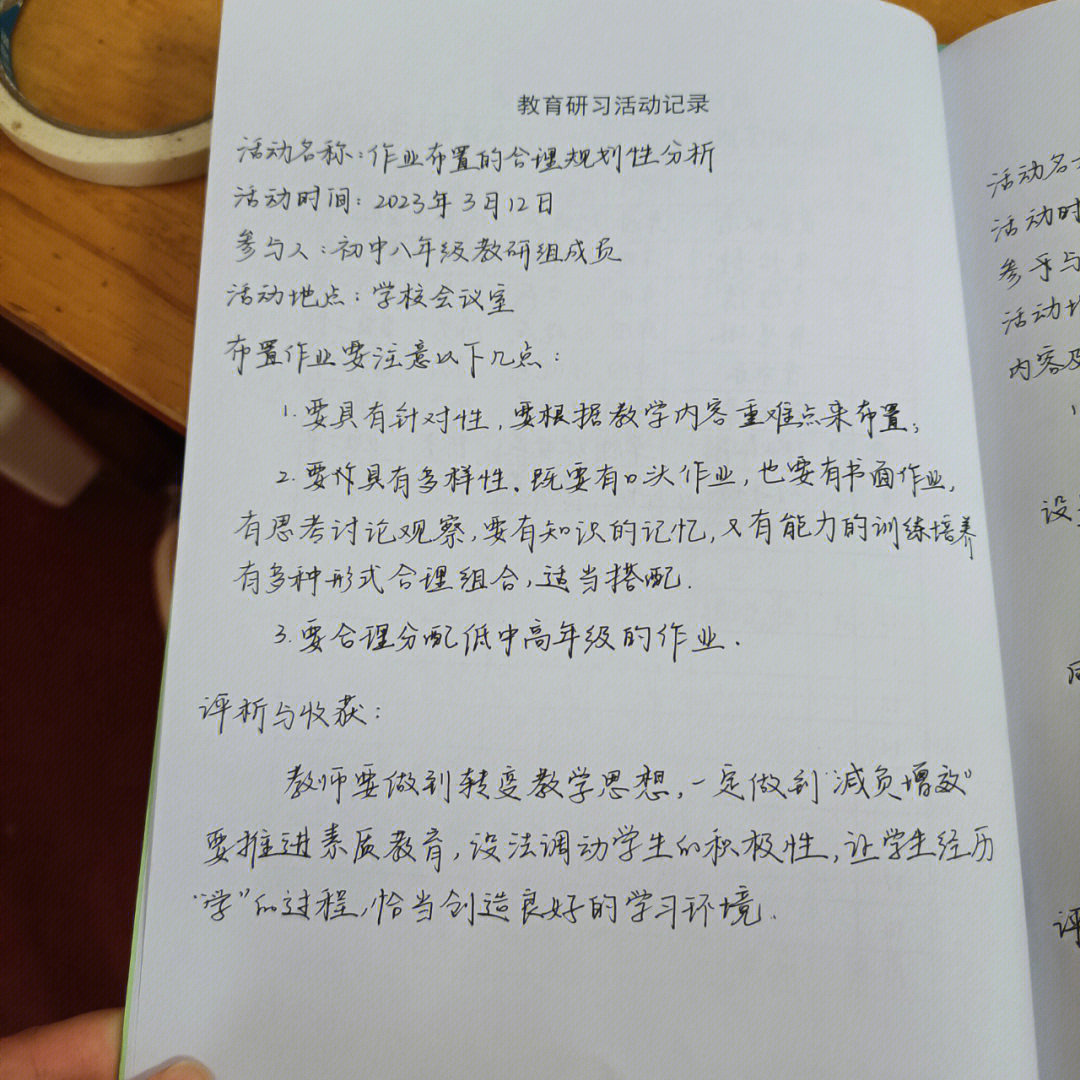 教育研习活动记录
活动名称：作业布置的合理规划性分析
活动时间：2023年3月12日
参与人：初中八年级教研组成员
活动地点：学校会议室
布置作业要注意以下几点：
1.要具有针对性，要根据教学内容重难点来布置；
2.要作具有多样性、既要有口头作业，也要有书面作业，
有思考讨论观察，要有知识的记忆，又有能力的训练培养
有多种形式合理组合，适当搭配.
3.要合理分配低中高年级的作业.
评析与收获：
教师要做到转变教学思想，一定做到“减负增效”
要推进素质教育，设法调动学生的积极性，让学生经历
“学”的过程，恰当创造良好的学习环境.
活动名
活动时
参与
活动地
内容及
设
评